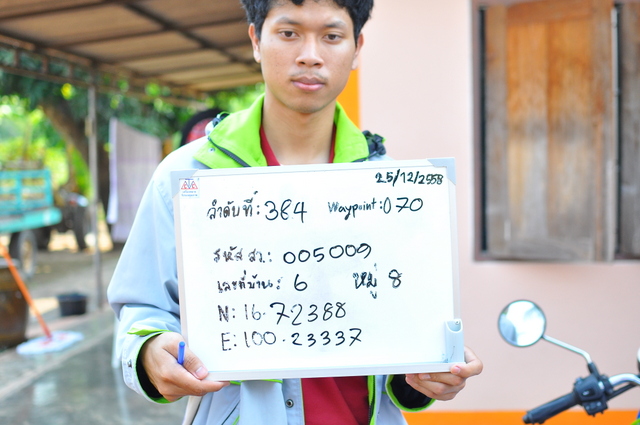 25/12/2558
ลำดับที่: 384 Waypoint: 070
รหัส สว.: 005009
เลขที่บ้าน: 6 หมู่ 8
N: 16.72388
E: 100.23337